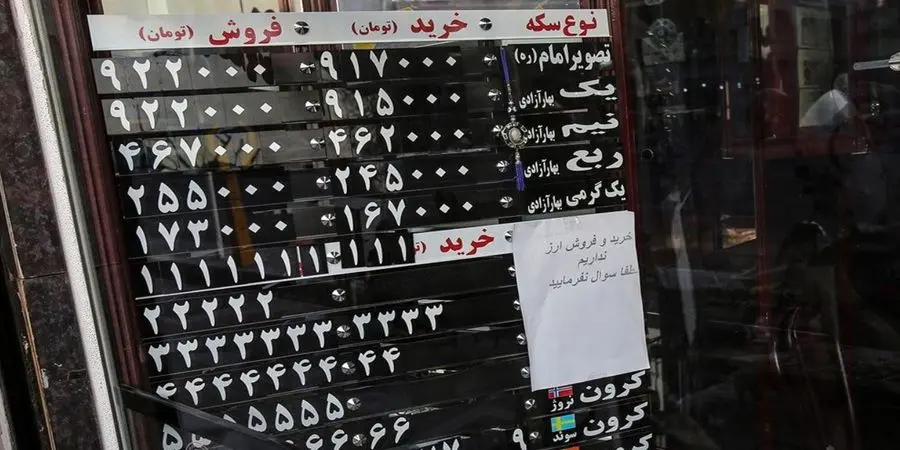 نوع سکه خرید (تومان) فروش (تومان)
تصویر امام (ره) ۹۱۷۰۰۰ ۹۲۲۰۰۰
یک بهارآزادی ۹۱۵۰۰۰ ۹۲۲۰۰۰
نیم بهارآزادی ۴۶۲۰۰۰ ۴۶۷۰۰۰
ربع بهارآزادی ۲۴۵۰۰۰ ۲۵۵۰۰۰
یک گرمی بهارآزادی ۱۶۷۰۰۰ ۱۷۳۰۰۰
خرید ۱۱۱
۱۱۱۱۱۱۱
۲۲۲۲۲
۳۳۳۳ ۳۳۳۳۳۳۳
۴۴ ۴۴۴۴۴۴
خرید و فروش ارز
نداریم
لطفا سوال نفرمایید
کرون نروژ
کرون سوئد
کرون